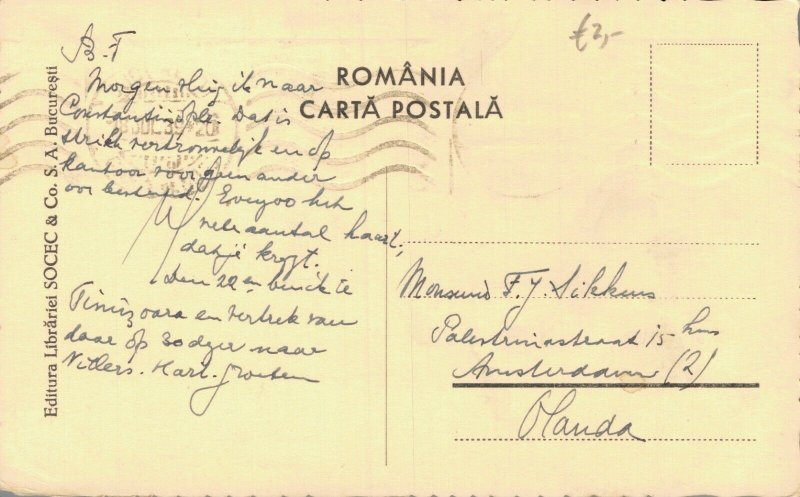 €2,-
ROMÂNIA
CARTĂ POSTALĂ
Editura Librăriei SOCEC & Co. S. A. București
B.F
Morgen vlieg ik naar
Constantinople. Dat is
strikt vertrouwelijk en op
kantoor voor geen ander
oor bestemd. Evenzoo het
vele aantal kaart,
dat je krygt.
Den 29en ben ik te
Timișoara en vertrek van
daar op 30 dezer naar
Villers. Hart. groeten
Monsieur F. J. Sikkens
Palestrinastraat 15 hs
Amsterdam (Z)
Olanda